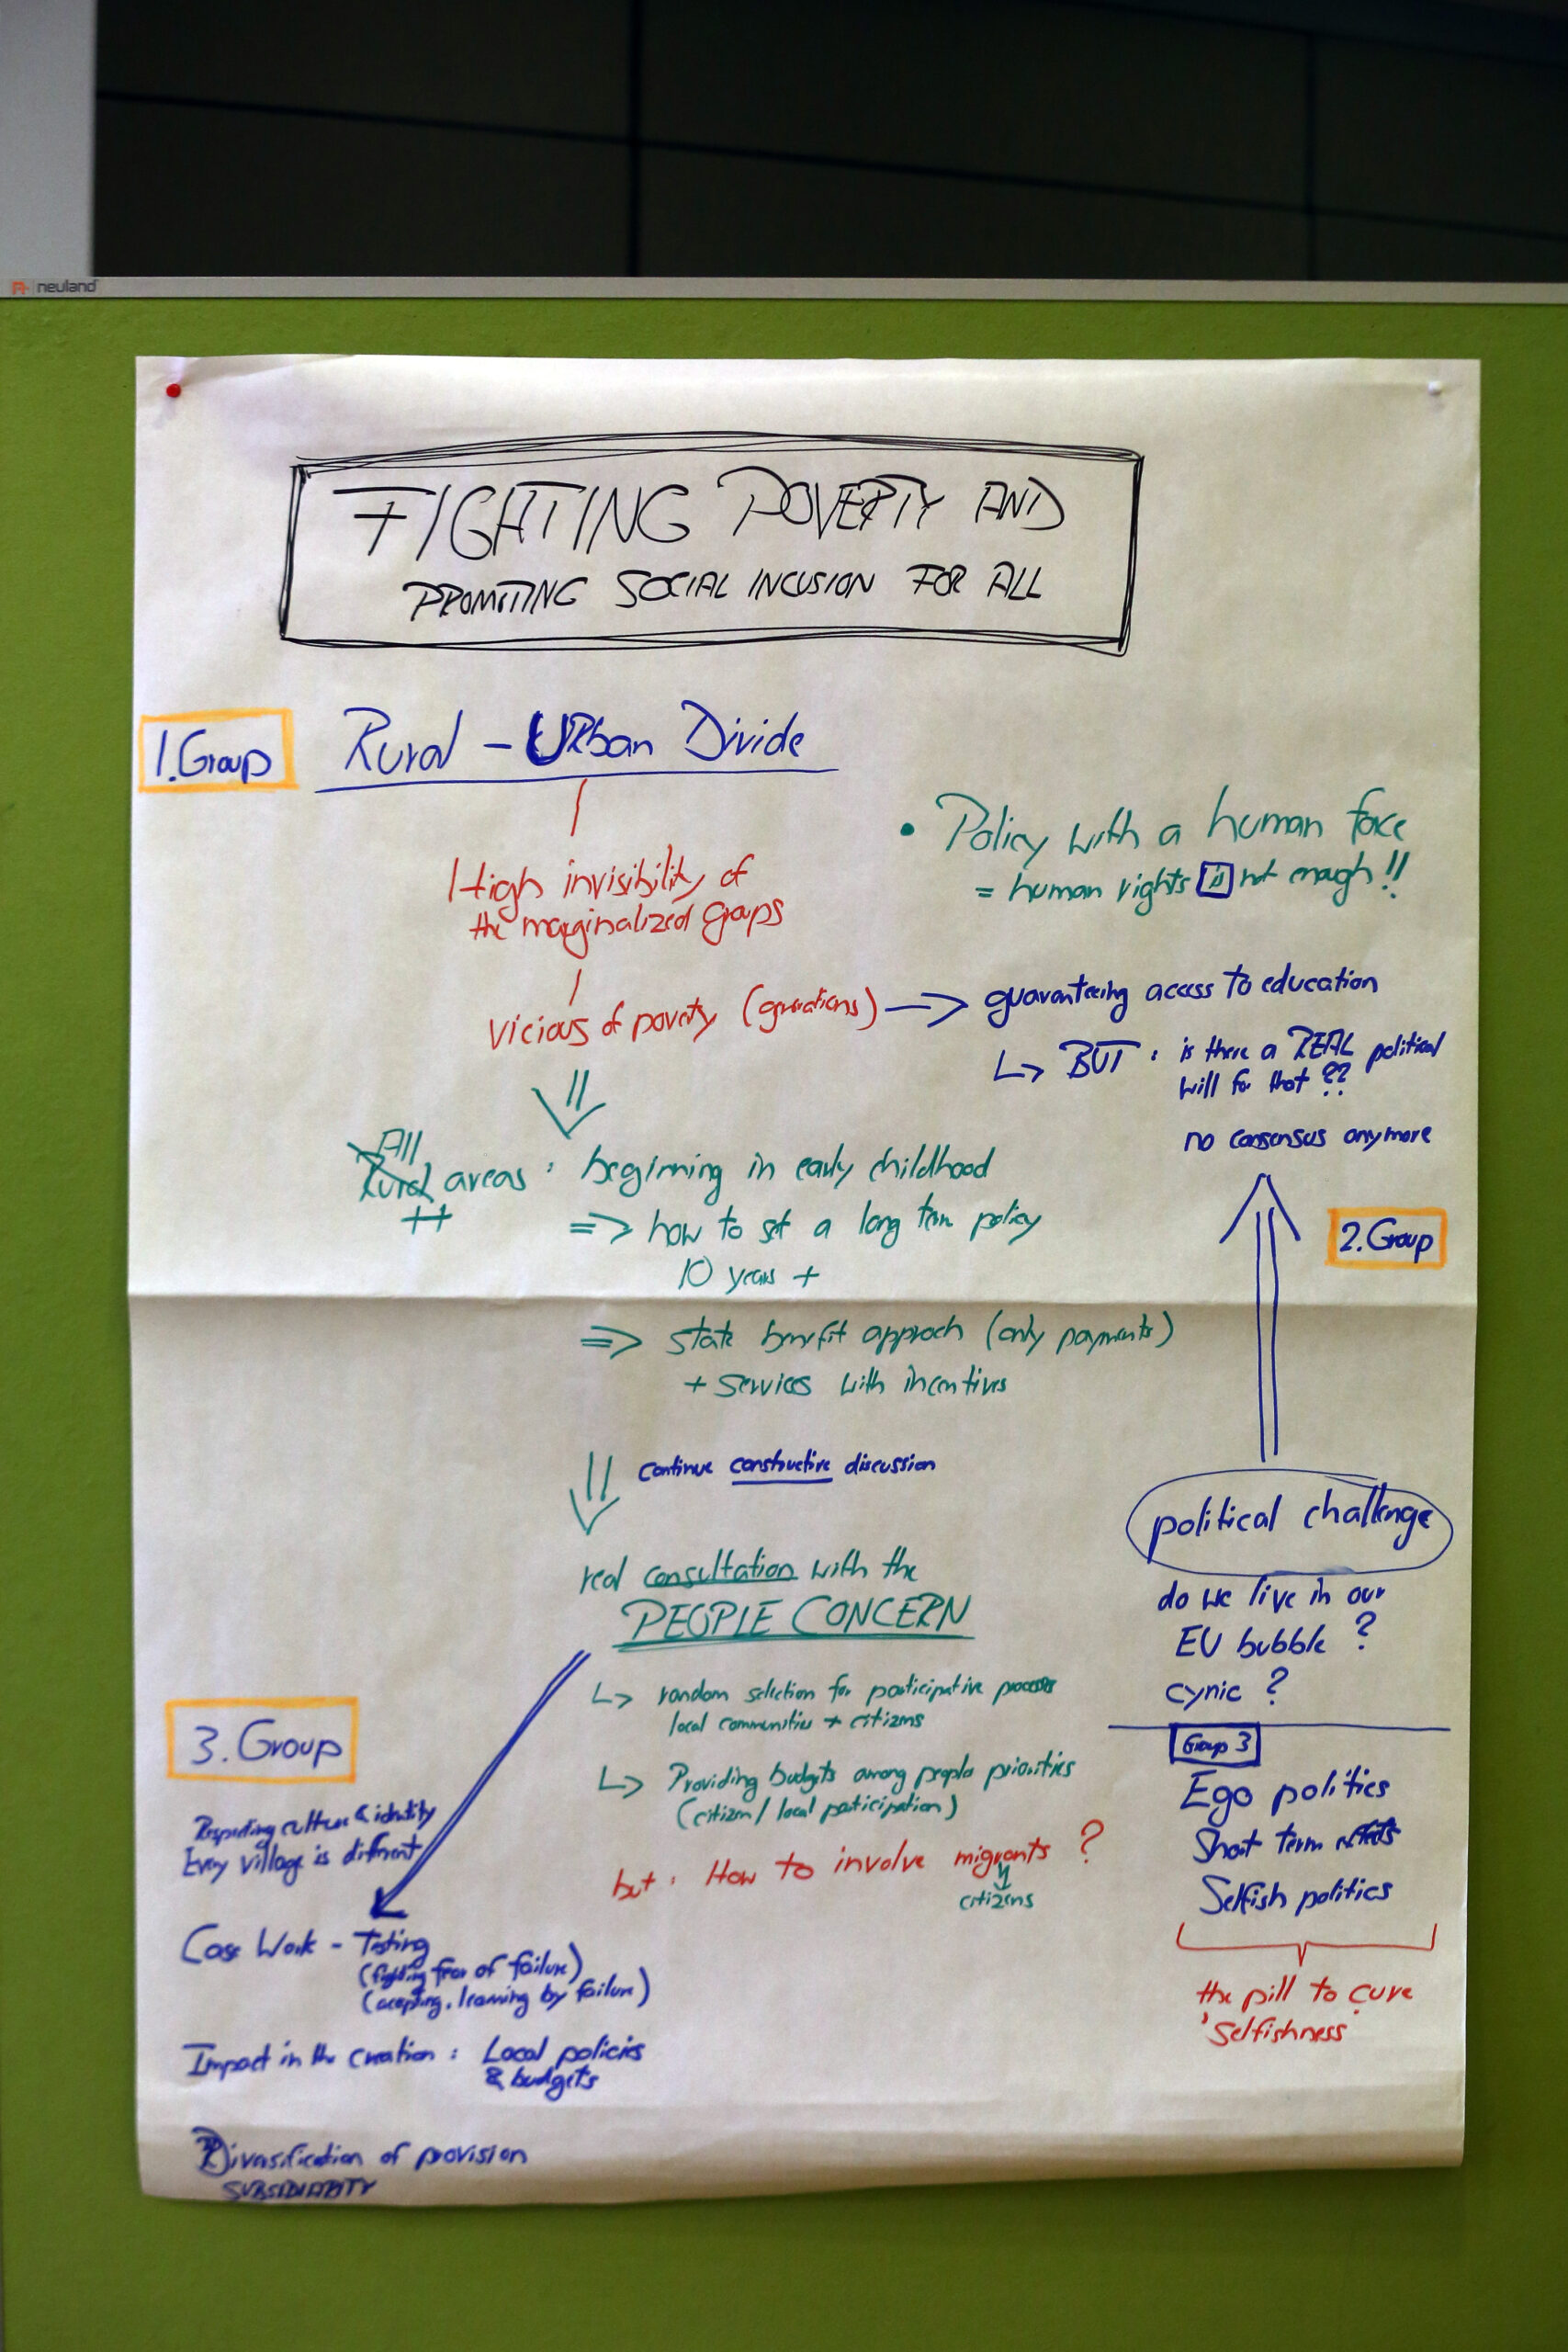 neuland
FIGHTING POVERTY AND
PROMOTING SOCIAL INCUSION FOR ALL
1. Group
Rural - URban Divide
High invisibility of
the marginalized groups
• Policy with a human face
= human rights is not enough!!
vicious of poverty (gnrations)
→ guaranteeing access to education
↳ BUT: is there a REAL political
will for that ??
no consensus anymore
All
Rural areas: beginning in early childhood
++
=> how to set a long term policy
10 years +
=> state benefit approch (only payments)
+ services with incentives
2. Group
continue constructive discussion
political challenge
do we live in our
EU bubble ?
cynic ?
real consultation with the
PEOPLE CONCERN
↳ random selection for participative processes
local communities + citizens
↳ Providing budgets among people priorities
(citizen / local participation)
but: How to involve migrants ?
citizens
Group 3
Ego politics
Short term
Selfish politics
the pill to cure
'Selfishness'
3. Group
Respecting culture & identity
Every village is different
Case Work - Testing
(fighting fear of failure)
(accepting, learning by failure)
Impact in the creation: Local policies
& budgets
Diversification of provision
SUBSIDIARITY